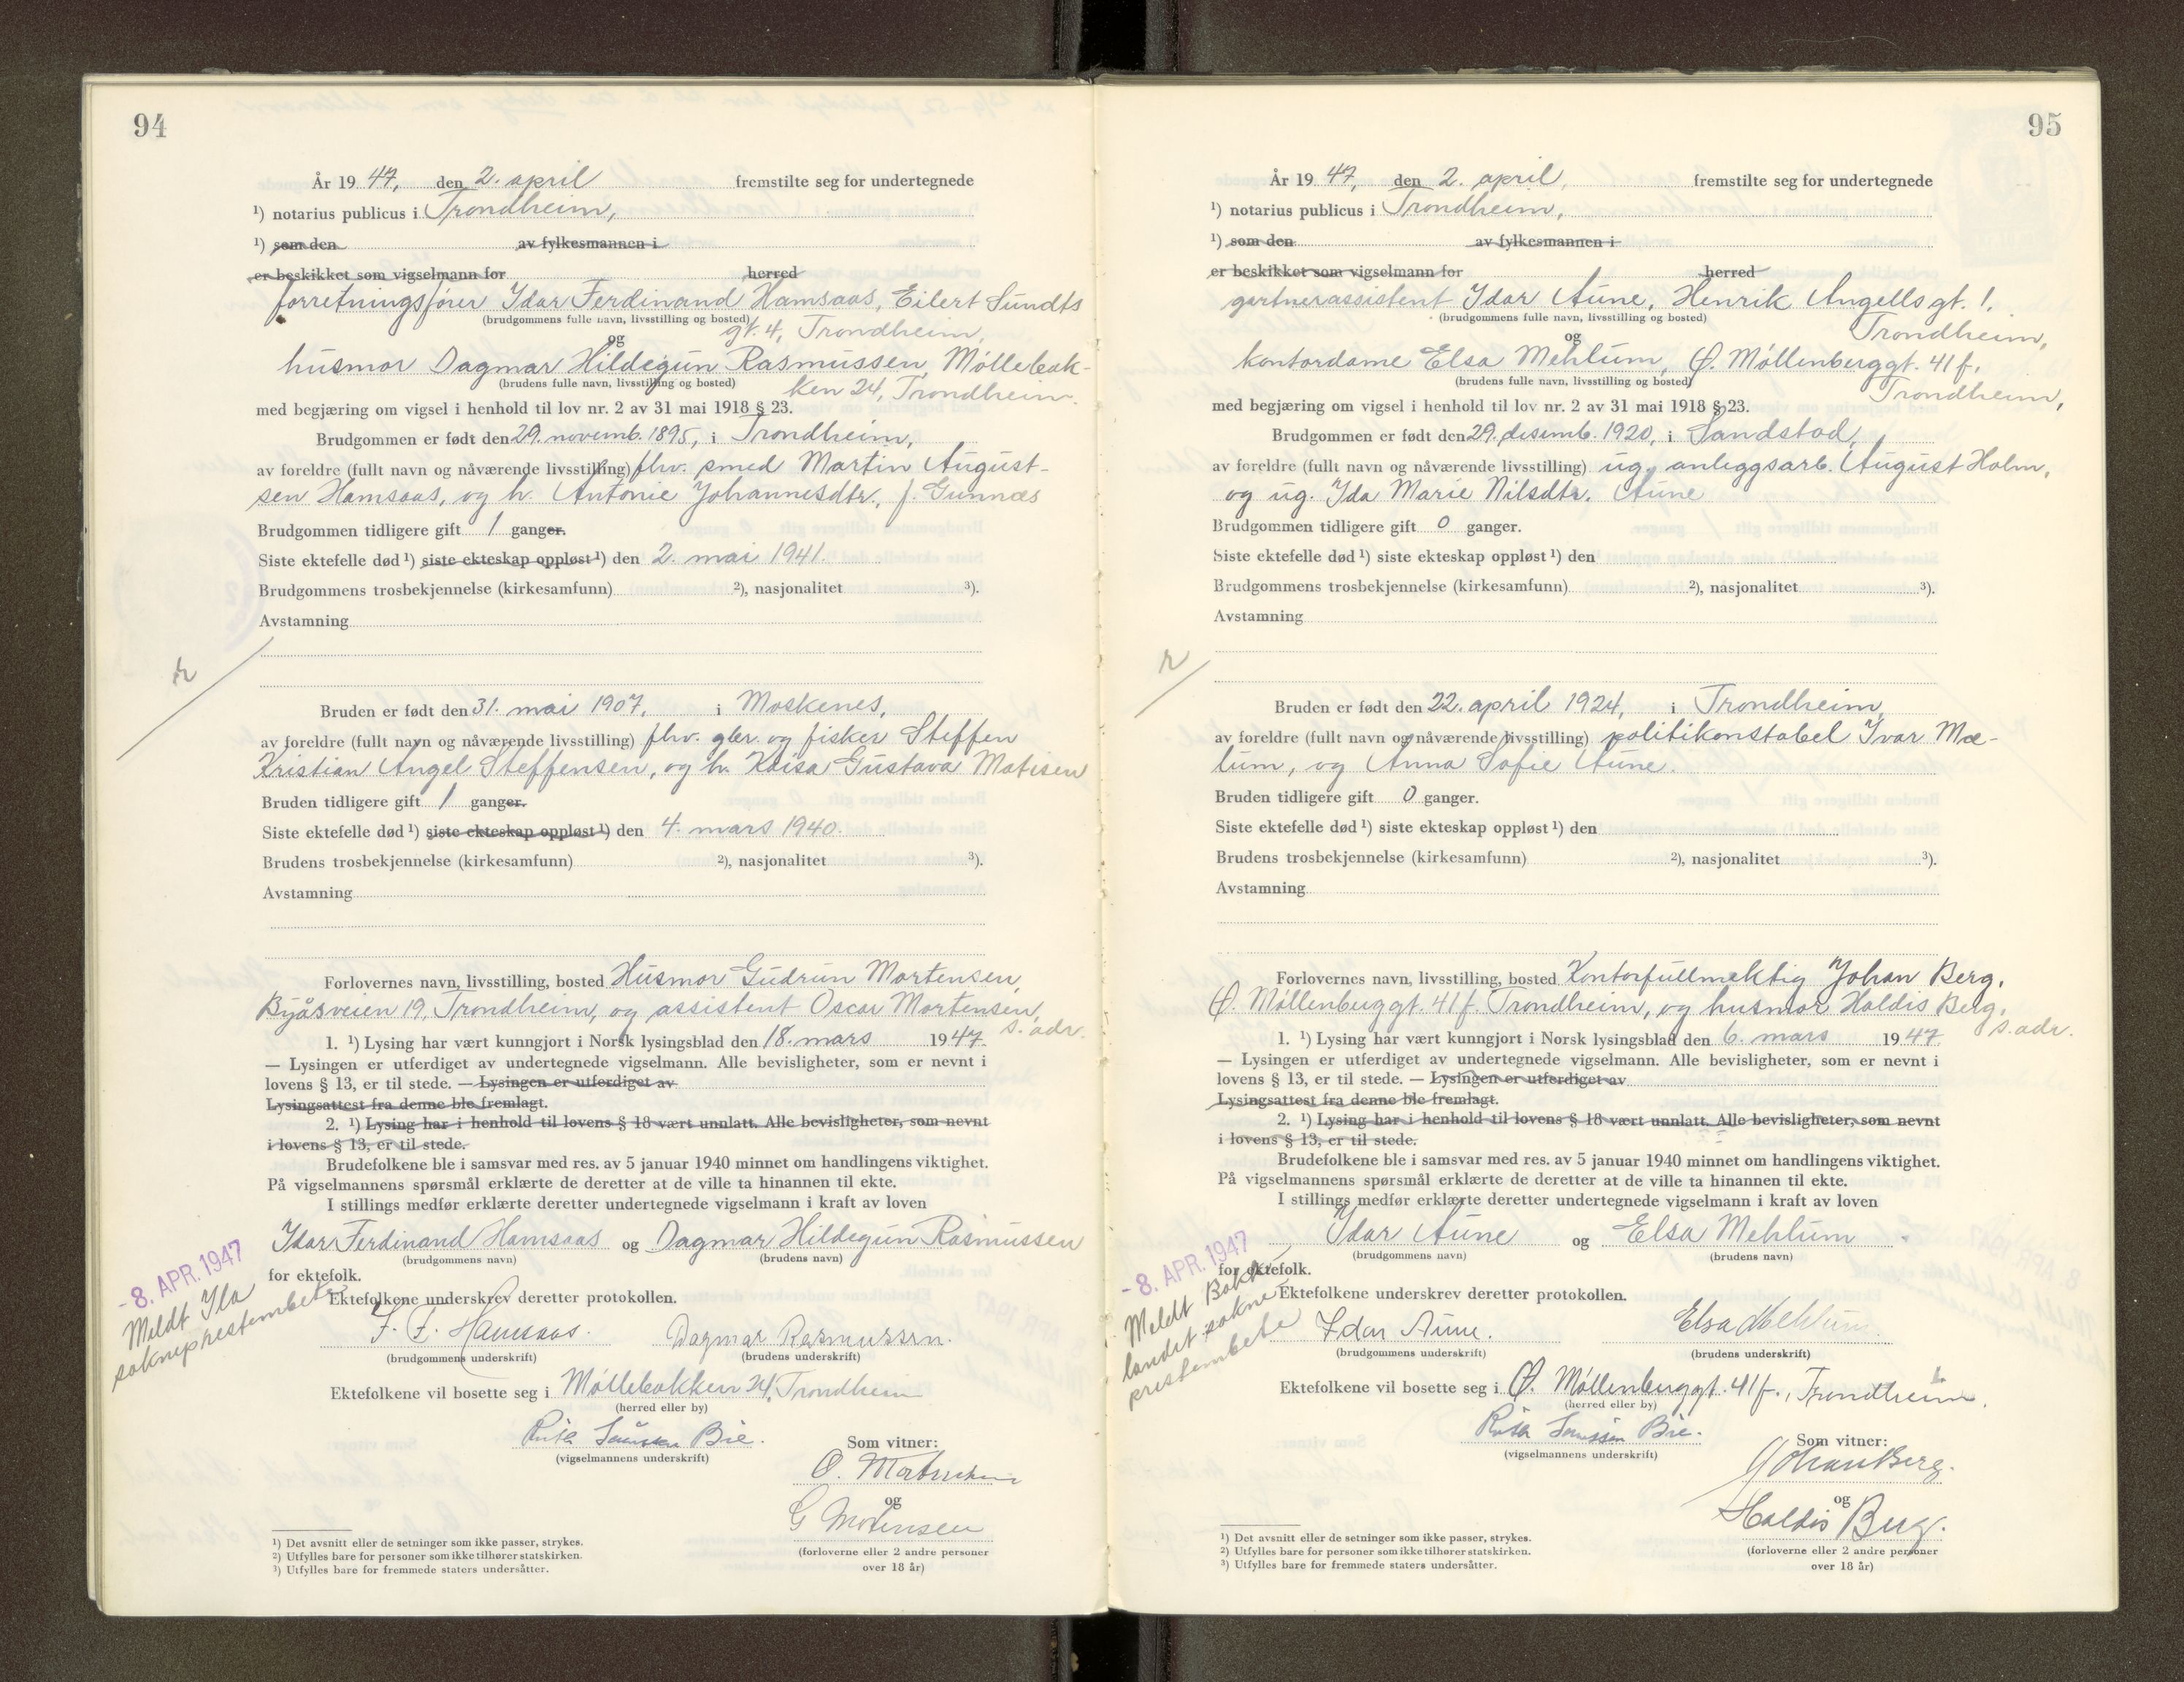 94
År 19 47, den 2. april fremstilte seg for undertegnede
¹) notarius publicus i Trondheim,
¹) som den av fylkesmannen i
er beskikket som vigselmann for herred
forretningsfører Idar Ferdinand Hamsaas, Eilert Sundts
(brudgommens fulle navn, livsstilling og bosted) gt. 4, Trondheim,
og
husmor Dagmar Hildegun Rasmussen, Møllebak-
(brudens fulle navn, livsstilling og bosted) ken 24, Trondheim.
med begjæring om vigsel i henhold til lov nr. 2 av 31 mai 1918 § 23.
Brudgommen er født den 29. novemb. 1895, i Trondheim,
av foreldre (fullt navn og nåværende livsstilling) fhv. smed Martin August-
sen Hamsaas, og h. Antonie Johannesdtr., f. Gunnæs
Brudgommen tidligere gift 1 ganger.
Siste ektefelle død ¹) siste ekteskap oppløst ¹) den 2. mai 1941.
Brudgommens trosbekjennelse (kirkesamfunn) ²), nasjonalitet ³).
Avstamning
Bruden er født den 31. mai 1907, i Moskenes,
av foreldre (fullt navn og nåværende livsstilling) fhv. gbr. og fisker Steffen
Kristian Angel Steffensen, og h. Kaisa Gustava Matisen
Bruden tidligere gift 1 ganger.
Siste ektefelle død ¹) siste ekteskap oppløst ¹) den 4. mars 1940.
Brudens trosbekjennelse (kirkesamfunn) ²), nasjonalitet ³).
Avstamning
Forlovernes navn, livsstilling, bosted Husmor Gudrun Mortensen,
Byåsveien 19, Trondheim, og assistent Oscar Mortensen,
s. adr.
1. ¹) Lysing har vært kunngjort i Norsk lysingsblad den 18. mars 19 47.
— Lysingen er utferdiget av undertegnede vigselmann. Alle bevisligheter, som er nevnt i
lovens § 13, er til stede. — Lysingen er utferdiget av
Lysingsattest fra denne ble fremlagt.
2. ¹) Lysing har i henhold til lovens § 18 vært unnlatt. Alle bevisligheter, som nevnt
i lovens § 13, er til stede.
Brudefolkene ble i samsvar med res. av 5 januar 1940 minnet om handlingens viktighet.
På vigselmannens spørsmål erklærte de deretter at de ville ta hinannen til ekte.
I stillings medfør erklærte deretter undertegnede vigselmann i kraft av loven
Idar Ferdinand Hamsaas og Dagmar Hildegun Rasmussen
(brudgommens navn) (brudens navn)
for ektefolk.
- 8. APR. 1947
Meldt Ila
sokneprestembete
Ektefolkene underskrev deretter protokollen.
I. F. Hamsaas. Dagmar Rasmussen.
(brudgommens underskrift) (brudens underskrift)
Ektefolkene vil bosette seg i Møllebakken 24, Trondheim
(herred eller by)
Bie.
(vigselmannens underskrift)
Som vitner:
O. Mortensen
og
G Mortensen
(forloverne eller 2 andre personer
over 18 år)
¹) Det avsnitt eller de setninger som ikke passer, strykes.
²) Utfylles bare for personer som ikke tilhører statskirken.
³) Utfylles bare for fremmede staters undersåtter.
95
År 19 47, den 2. april, fremstilte seg for undertegnede
¹) notarius publicus i Trondheim,
¹) som den av fylkesmannen i
er beskikket som vigselmann for herred
gartnerassistent Idar Aune, Henrik Angells gt. 1,
(brudgommens fulle navn, livsstilling og bosted) Trondheim,
og
kontordame Elsa Mehlum, Ø. Møllenberggt. 41 f,
(brudens fulle navn, livsstilling og bosted) Trondheim,
med begjæring om vigsel i henhold til lov nr. 2 av 31 mai 1918 § 23.
Brudgommen er født den 29. desemb. 1920, i Sandstad,
av foreldre (fullt navn og nåværende livsstilling) ug. anleggsarb. August Holm,
og ug. Ida Marie Nilsdtr. Aune
Brudgommen tidligere gift 0 ganger.
Siste ektefelle død ¹) siste ekteskap oppløst ¹) den
Brudgommens trosbekjennelse (kirkesamfunn) ²), nasjonalitet ³).
Avstamning
Bruden er født den 22. april 1924, i Trondheim,
av foreldre (fullt navn og nåværende livsstilling) politikonstabel Ivar Mæ-
lum, og Anna Sofie Aune.
Bruden tidligere gift 0 ganger.
Siste ektefelle død ¹) siste ekteskap oppløst ¹) den
Brudens trosbekjennelse (kirkesamfunn) ²), nasjonalitet ³).
Avstamning
Forlovernes navn, livsstilling, bosted Kontorfullmektig Johan Berg,
Ø. Møllenberggt. 41 f. Trondheim, og husmor Haldis Berg,
s. adr.
1. ¹) Lysing har vært kunngjort i Norsk lysingsblad den 6. mars 19 47
— Lysingen er utferdiget av undertegnede vigselmann. Alle bevisligheter, som er nevnt i
lovens § 13, er til stede. — Lysingen er utferdiget av
Lysingsattest fra denne ble fremlagt.
2. ¹) Lysing har i henhold til lovens § 18 vært unnlatt. Alle bevisligheter, som nevnt
i lovens § 13, er til stede.
Brudefolkene ble i samsvar med res. av 5 januar 1940 minnet om handlingens viktighet.
På vigselmannens spørsmål erklærte de deretter at de ville ta hinannen til ekte.
I stillings medfør erklærte deretter undertegnede vigselmann i kraft av loven
Idar Aune og Elsa Mehlum
(brudgommens navn) (brudens navn)
for ektefolk.
- 8. APR. 1947
Meldt Bakk
landet sokne
prestembete
Ektefolkene underskrev deretter protokollen.
Idar Aune. Elsa Mehlum.
(brudgommens underskrift) (brudens underskrift)
Ektefolkene vil bosette seg i Ø. Møllenberggt. 41 f., Trondheim.
(herred eller by)
Bie.
(vigselmannens underskrift)
Som vitner:
Johan Berg.
og
Haldis Berg.
(forloverne eller 2 andre personer
over 18 år)
¹) Det avsnitt eller de setninger som ikke passer, strykes.
²) Utfylles bare for personer som ikke tilhører statskirken.
³) Utfylles bare for fremmede staters undersåtter.